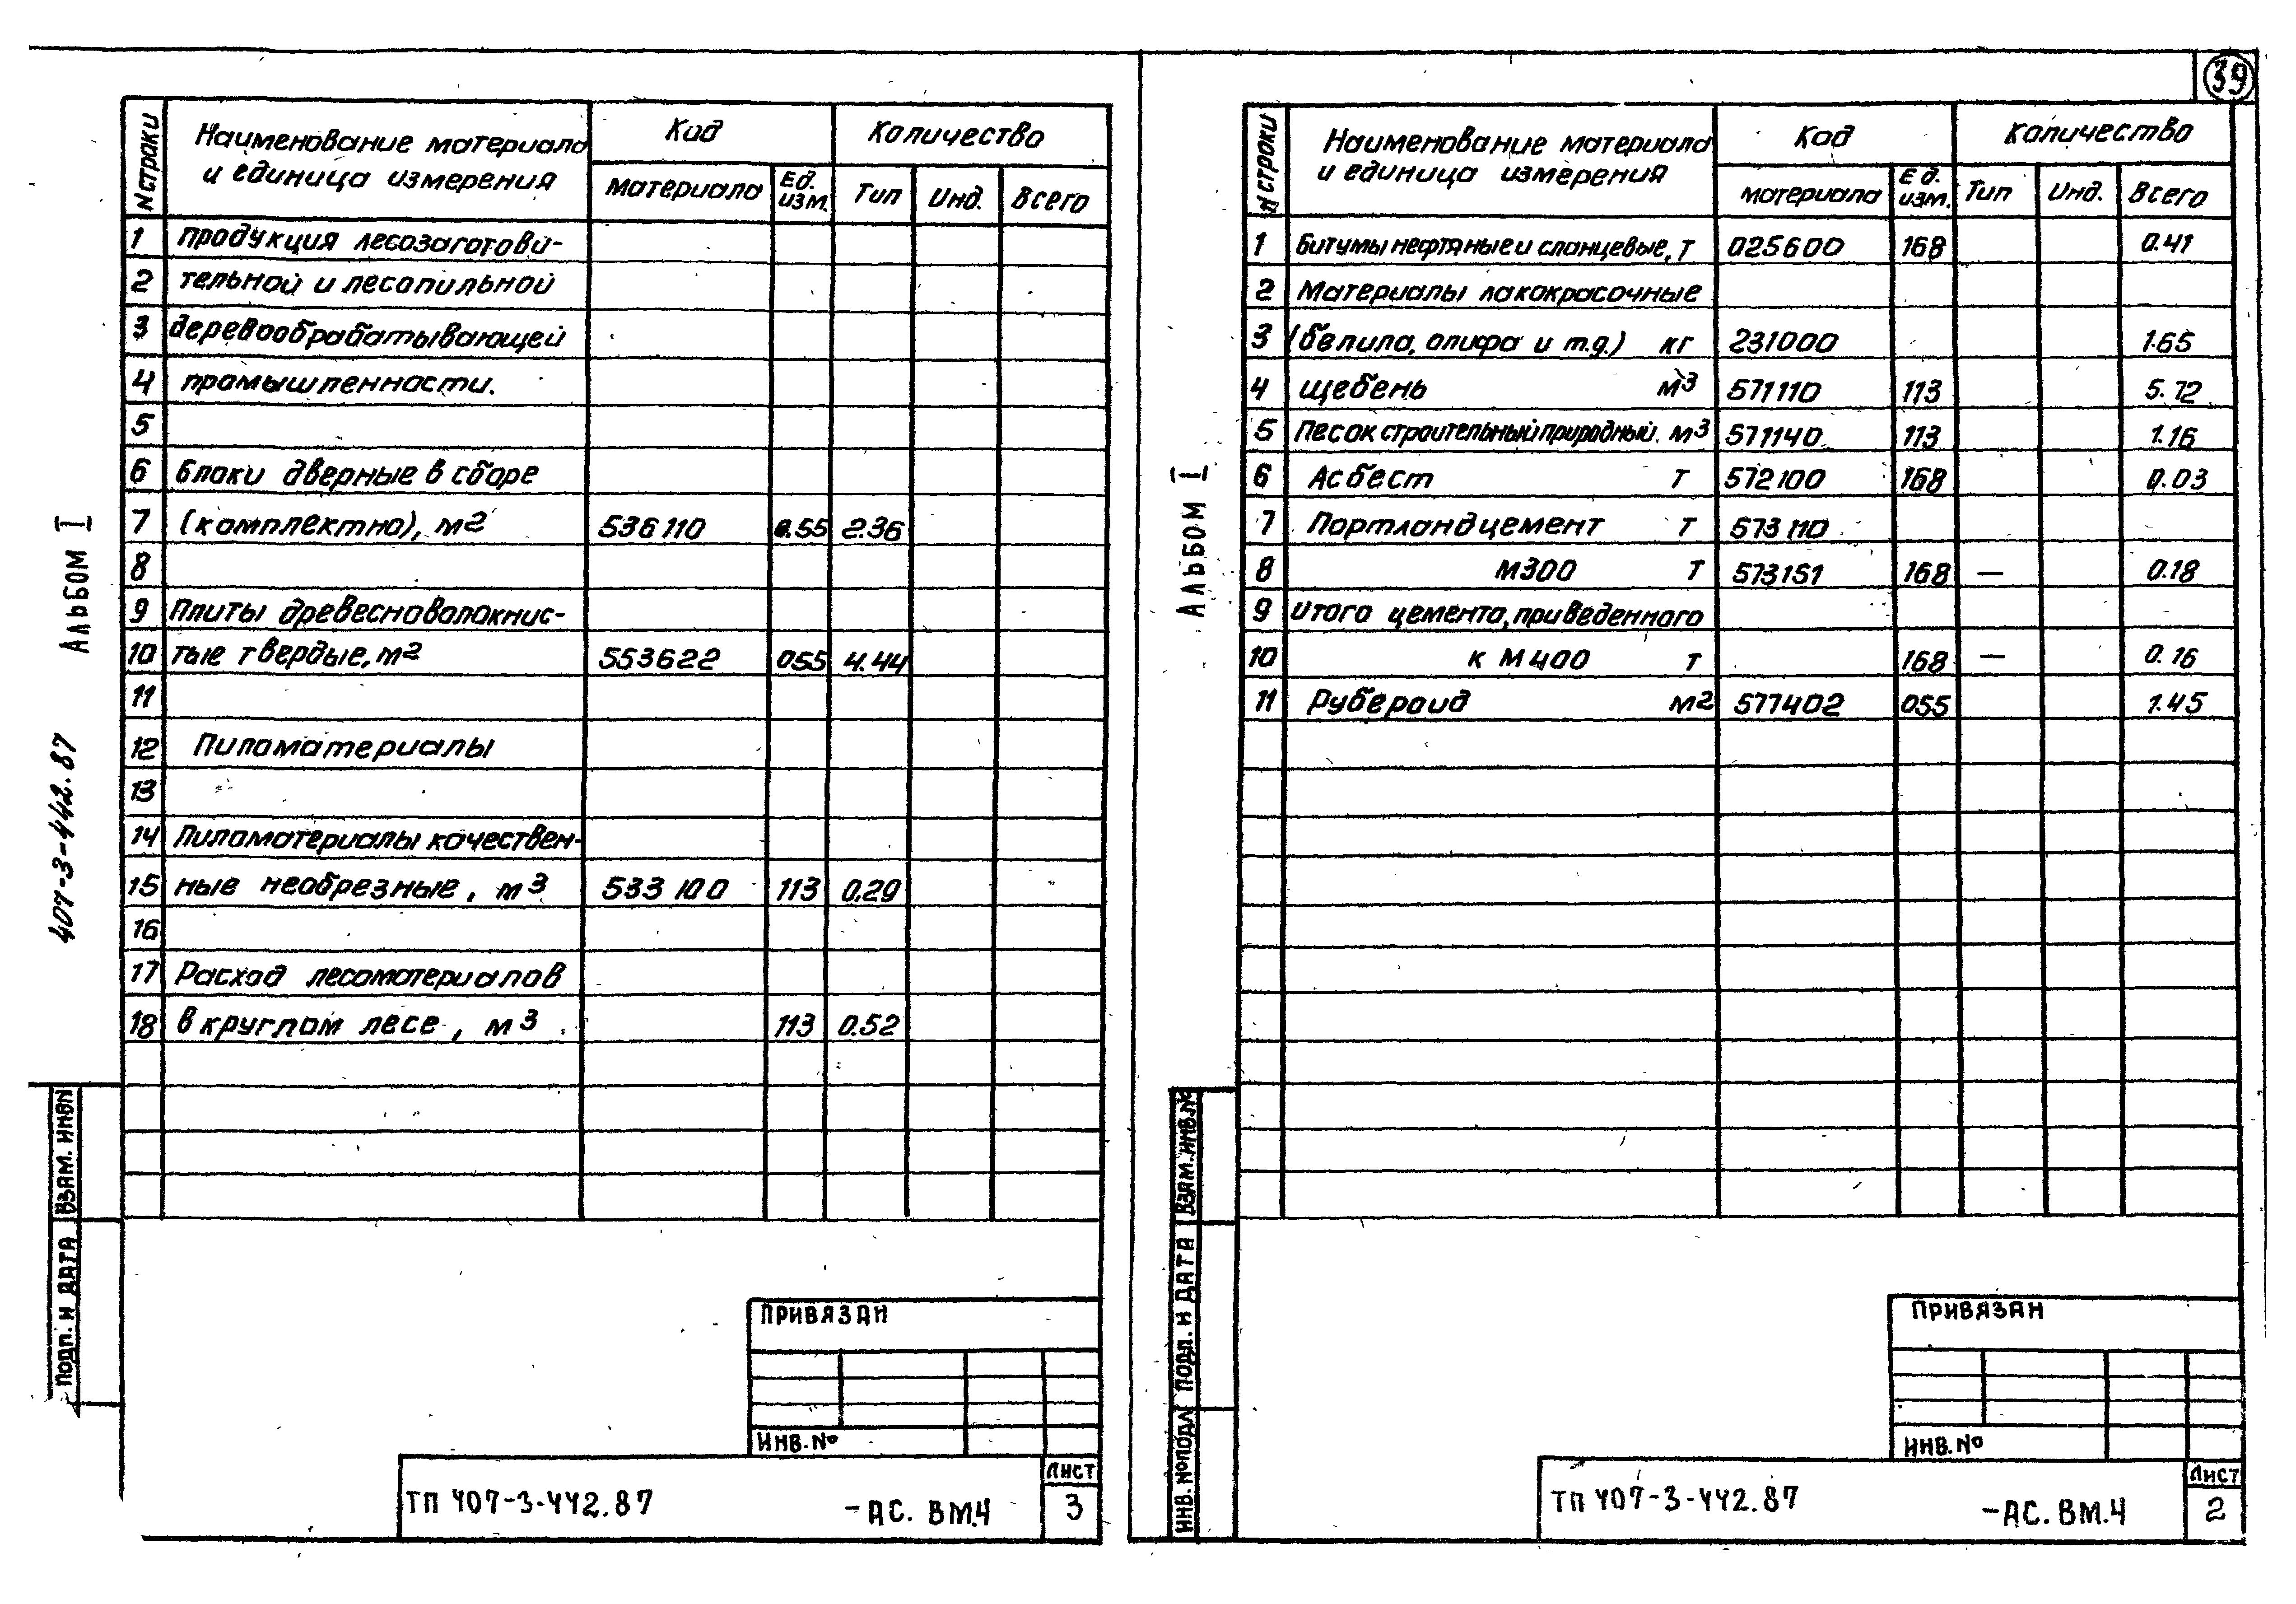 39
Альбом I
407-3-442.87
N строки Наименование материала и единица измерения Код Количество
материала Ед. изм. Тип Инд. Всего
1 продукция лесозаготови-
2 тельной и лесопильной
3 деревообрабатывающей
4 промышленности.
5
6 блоки дверные в сборе
7 (комплектно), м2 536110 0.55 2.36
8
9 Плиты древесноволокнис-
10 тые твердые, м2 553622 055 4.44
11
12 Пиломатериалы
13
14 Пиломатериалы качествен-
15 ные необрезные, м3 533100 113 0.29
16
17 Расход лесоматериалов
18 в круглом лесе, м3 113 0.52
Взам. инв N
Подп. и дата
Привязан
Инв. №
ТП 407-3-442.87 -АС. ВМ.4
Лист
3
Альбом I
N строки Наименование материала и единица измерения Код Количество
материала Ед. изм. Тип Инд. Всего
1 Битумы нефтяные и сланцевые, т 025600 168 0.41
2 Материалы лакокрасочные
3 (белила, олифа и т.д.) кг 231000 1.65
4 щебень м3 571110 113 5.72
5 Песок строительный природный. м3 571140 113 1.16
6 Асбест т 572100 168 0.03
7 Портландцемент т 573110
8 М300 т 573151 168 — 0.18
9 Итого цемента, приведенного
10 к М400 т 168 — 0.16
11 Рубероид м2 577402 055 1.45
Взам. инв. №
Подп. и дата
Инв. № подл
Привязан
Инв. №
ТП 407-3-442.87 -АС. ВМ.4
Лист
2